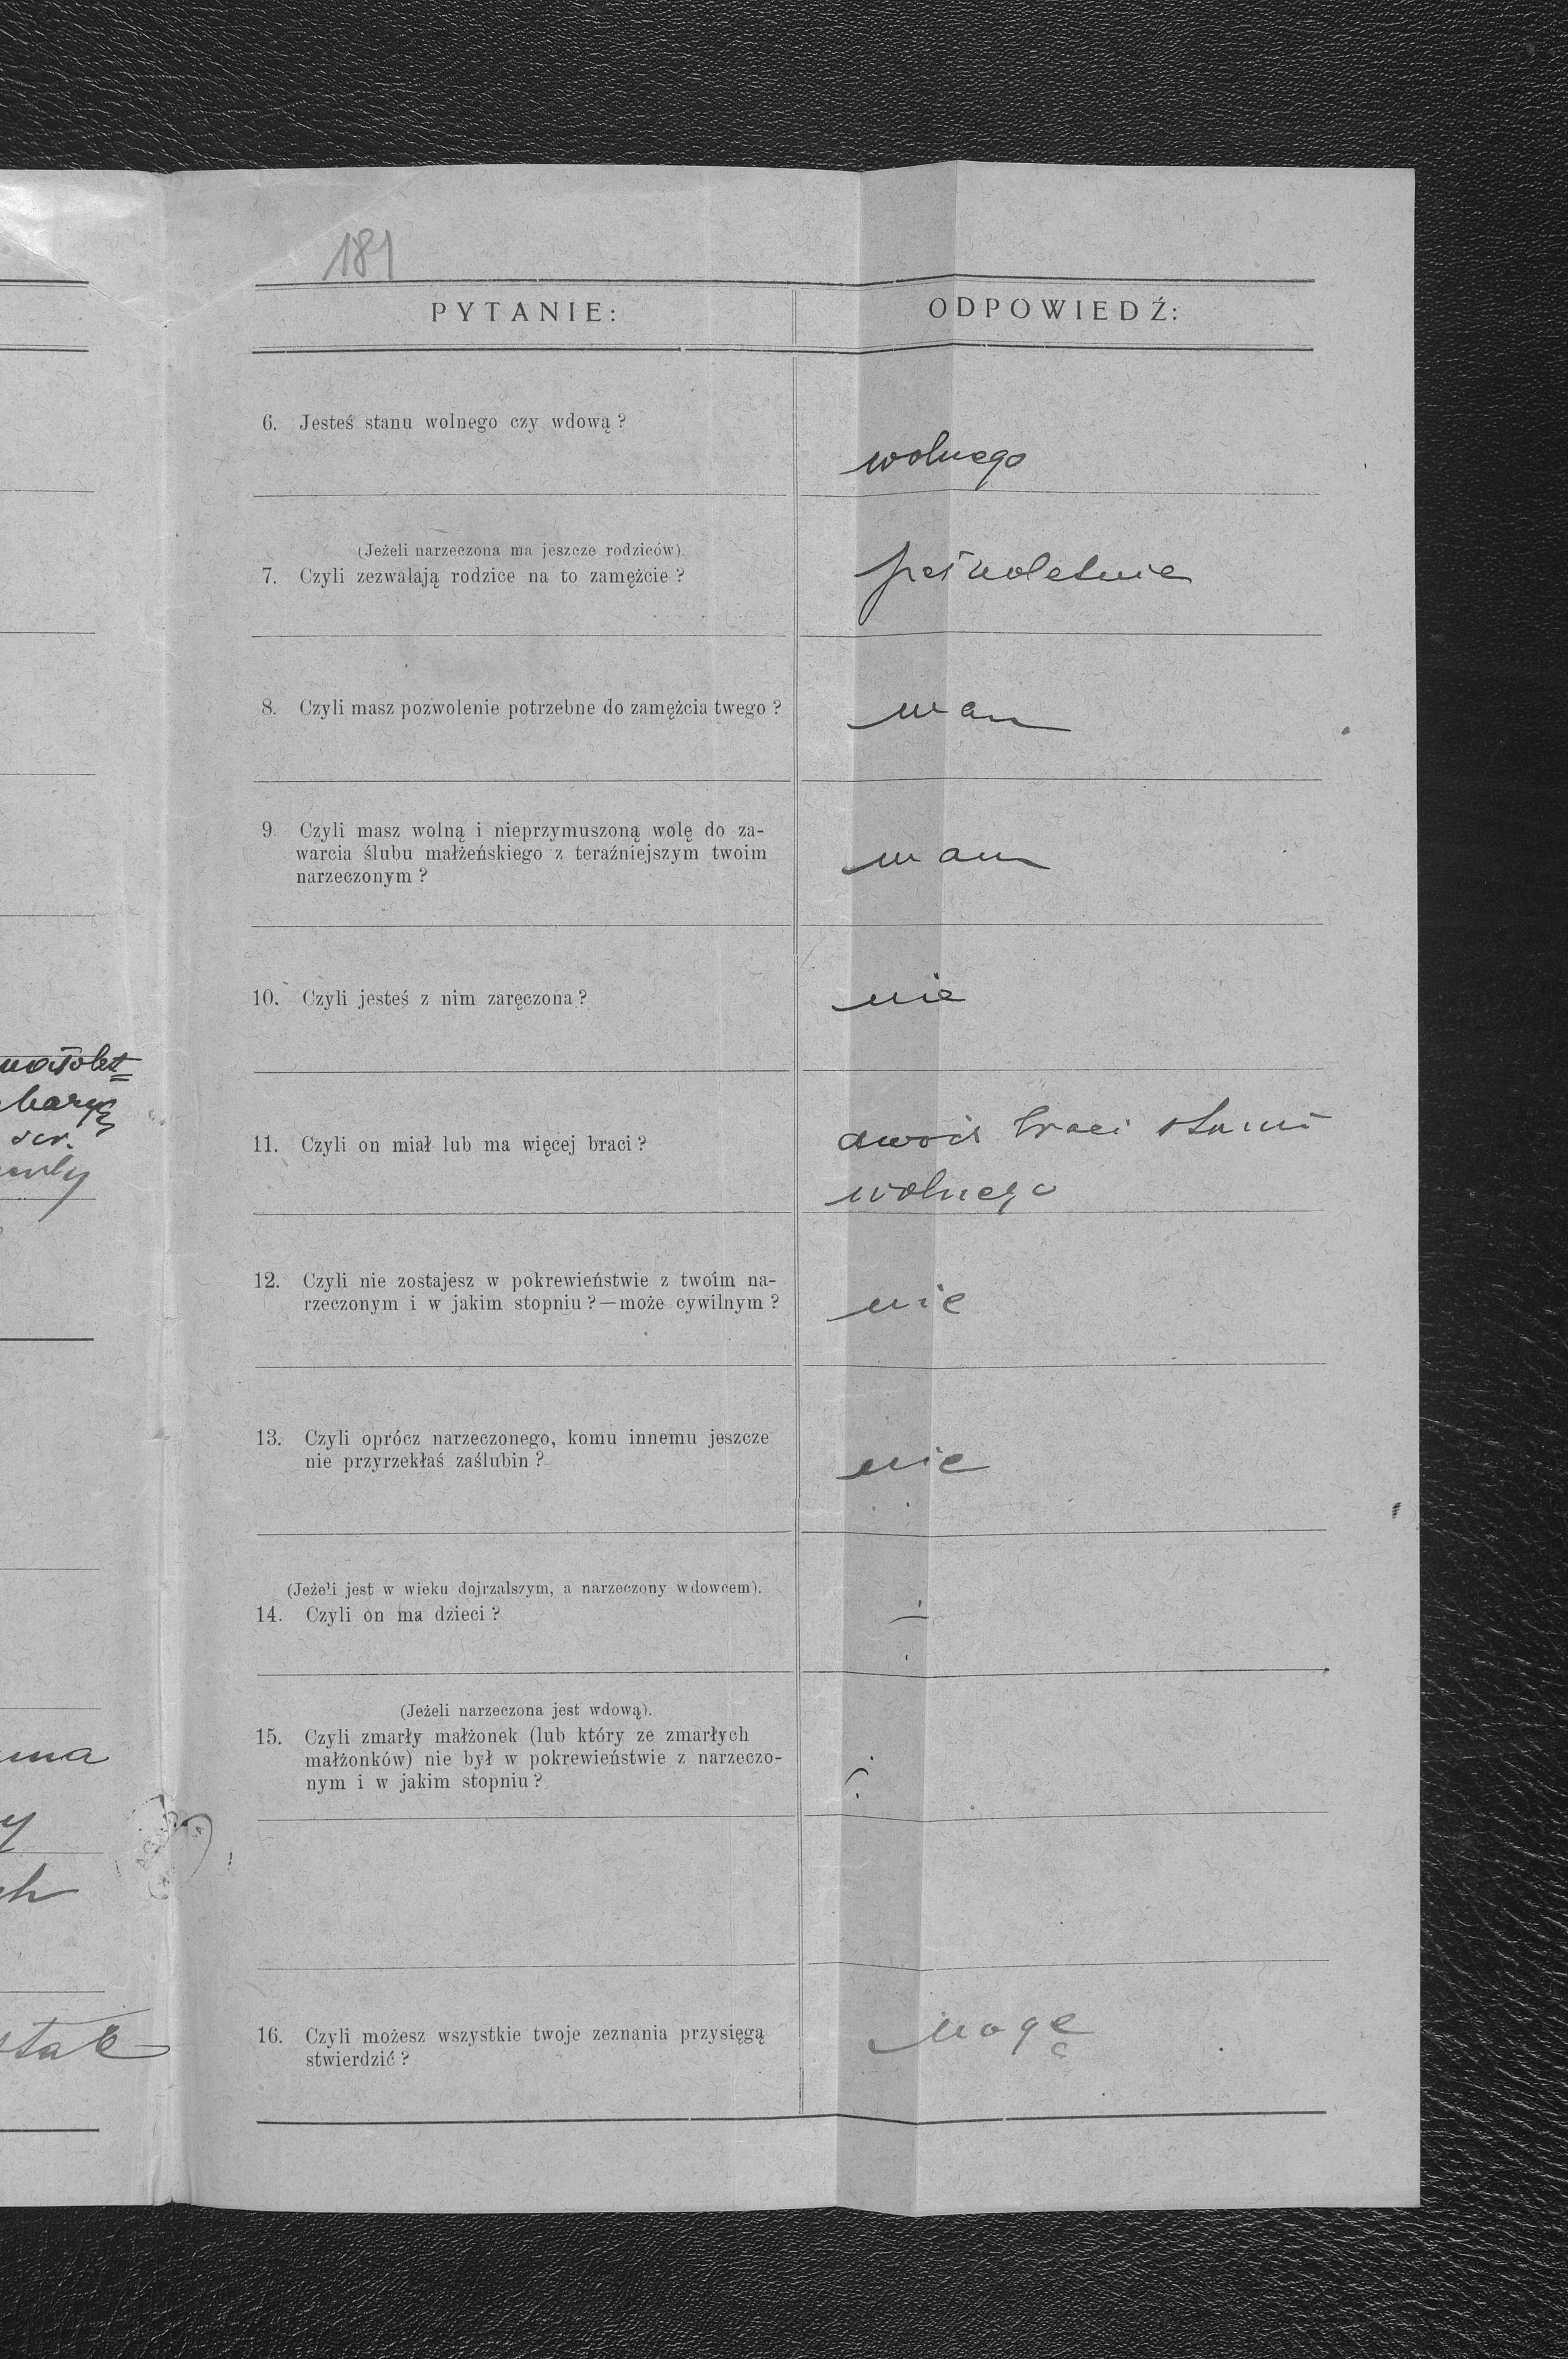 181
PYTANIE: ODPOWIEDŹ:
6. Jesteś stanu wolnego czy wdową?
wolnego
(Jeżeli narzeczona ma jeszcze rodziców).
7. Czyli zezwalają rodzice na to zamężcie?
pełnoletnie
8. Czyli masz pozwolenie potrzebne do zamężcia twego?
mam
9 Czyli masz wolną i nieprzymuszoną wolę do za-
warcia ślubu małżeńskiego z teraźniejszym twoim
narzeczonym?
mam
10. Czyli jesteś z nim zaręczona?
nie
11. Czyli on miał lub ma więcej braci?
braci stanu
wolnego
12. Czyli nie zostajesz w pokrewieństwie z twoim na-
rzeczonym i w jakim stopniu?—może cywilnym?
nie
13. Czyli oprócz narzeczonego, komu innemu jeszcze
nie przyrzekłaś zaślubin?
nie
(Jeżeli jest w wieku dojrzalszym, a narzeczony wdowcem).
14. Czyli on ma dzieci?
(Jeżeli narzeczona jest wdową).
15. Czyli zmarły małżonek (lub który ze zmarłych
małżonków) nie był w pokrewieństwie z narzeczo-
nym i w jakim stopniu?
16. Czyli możesz wszystkie twoje zeznania przysięgą
stwierdzić?
mogę